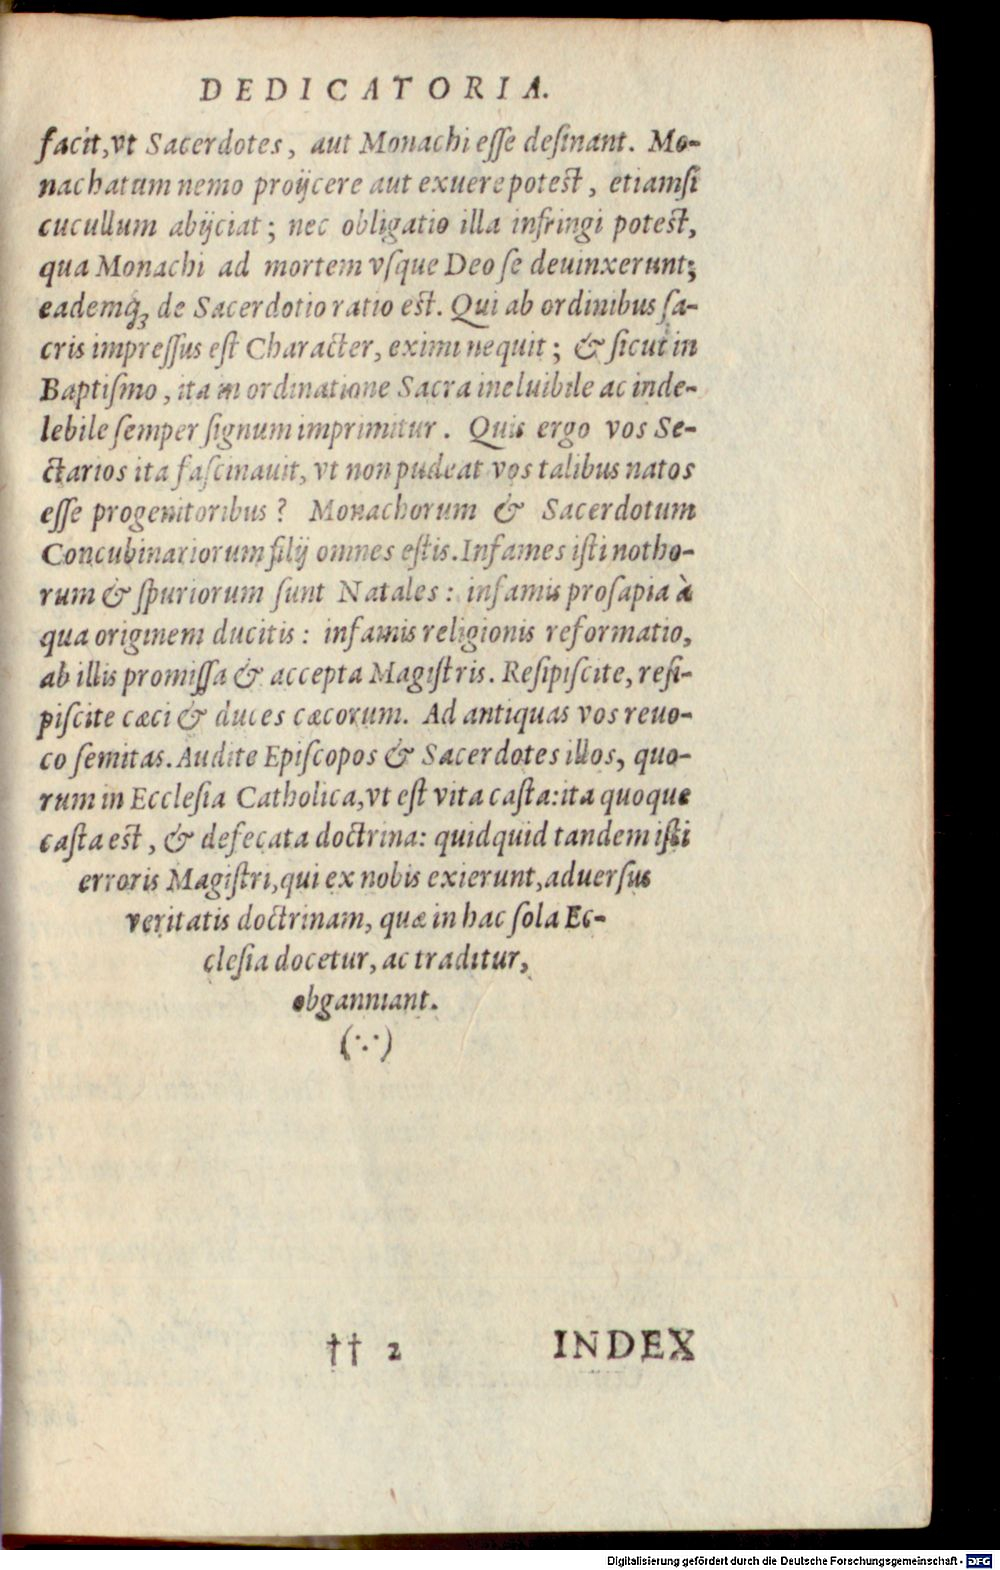 DEDICATORIA.
facit,vt Sacerdotes, aut Monachi eſſe deſinant. Mo-
nachatum nemo proijcere aut exuere poteſt, etiamſi
cucullum abijciat; nec obligatio illa infringi poteſt,
qua Monachi ad mortem vſque Deo ſe deuinxerunt;
eademq́ꝫ de Sacerdotio ratio eſt. Qui ab ordinibus ſa-
cris impreſſus eſt Character, eximi nequit; & ſicut in
Baptiſmo, ita in ordinatione Sacra ineluibile ac inde-
lebile ſemper ſignum imprimitur. Quis ergo vos Se-
ctarios ita faſcinauit, vt non pudeat vos talibus natos
eſſe progenitoribus? Monachorum & Sacerdotum
Concubinariorum filij omnes eſtis. Infames iſti notho-
rum & ſpuriorum ſunt Natales: infamis proſapia à
qua originem ducitis: infamis religionis reformatio,
ab illis promiſſa & accepta Magiſtris. Reſipiſcite, reſi-
piſcite cæci & duces cæcorum. Ad antiquas vos reuo-
co ſemitas. Audite Epiſcopos & Sacerdotes illos, quo-
rum in Eccleſia Catholica,vt eſt vita caſta:ita quoque
caſta eſt, & defecata doctrina: quidquid tandem iſti
erroris Magiſtri,qui ex nobis exierunt,aduerſus
veritatis doctrinam, quæ in hac ſola Ec-
cleſia docetur, ac traditur,
obganniant.
(∵)
†† 2 INDEX
Digitalisierung gefördert durch die Deutsche Forschungsgemeinschaft - DFG